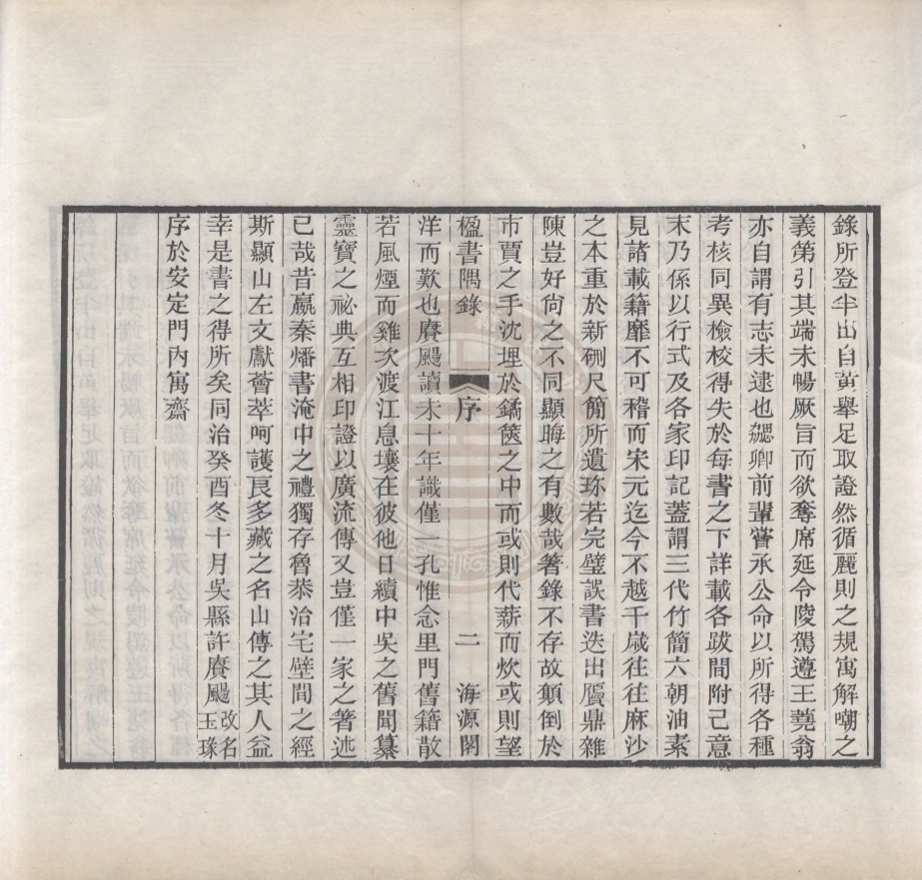 錄所登半出自黃舉足取證然循麗則之規寓解嘲之
義第引其端未暢厥旨而欲奪席延令陵駕遵王蕘翁
亦自謂有志未逮也勰卿前輩嘗承公命以所得各種
考核同異檢校得失於每書之下詳載各跋間附己意
末乃係以行式及各家印記蓋謂三代竹簡六朝油素
見諸載籍靡不可稽而宋元迄今不越千歲往往麻沙
之本重於新硎尺簡所遺珎若完璧誤書迭出贗鼎雜
陳豈好尙之不同顯晦之有數哉著錄不存故顛倒於
市賈之手沈埋於鐍篋之中而或則代薪而炊或則望
楹書隅錄 序 二 海源閣
洋而歎也賡颺讀未十年識僅一孔惟念里門舊籍散
若風煙而雞次渡江息壤在彼他日續中吳之舊聞纂
靈寶之祕典互相印證以廣流傳又豈僅一家之著述
已哉昔嬴秦燔書淹中之禮獨存魯恭治宅壁間之經
斯顯山左文獻薈萃呵護良多藏之名山傳之其人益
幸是書之得所矣同治癸酉冬十月吳縣許賡颺改名玉瑑
序於安定門內寓齋